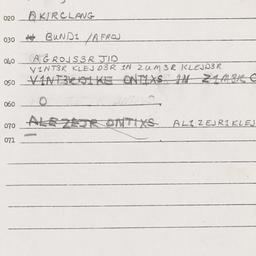 020 AKIRCLANG
030 BUNDI / AFROJ
040 AGROJS3R JID
V1NT3R KLEJD3R IN ZUM3R KLEJD3R
050 V1NT3RJIKE ONTIXS IN Z1M3R
060 O
070 ALEZEJR ONTIXS ALIZEJRIKLEJ
071